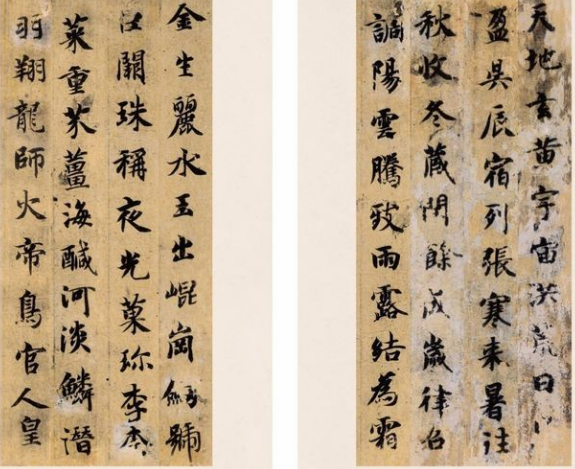 天地玄黃宇宙洪荒日
盈昃辰宿列張寒來暑往
秋收冬藏閏餘成歲律召
調陽雲騰致雨露結為霜
金生麗水玉出崐崗劒號
巨闕珠稱夜光菓珍李柰
菜重芥薑海醎河淡鱗潛
羽翔龍師火帝鳥官人皇